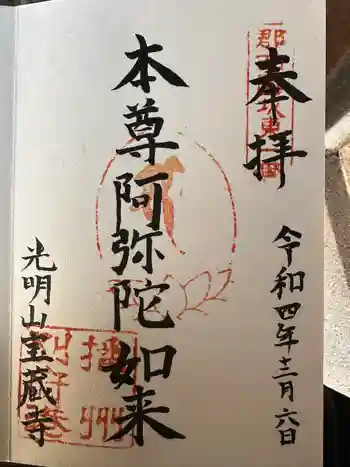 奉拝
令和四年十二月六日
本尊阿弥陀如来
光明山宝蔵寺